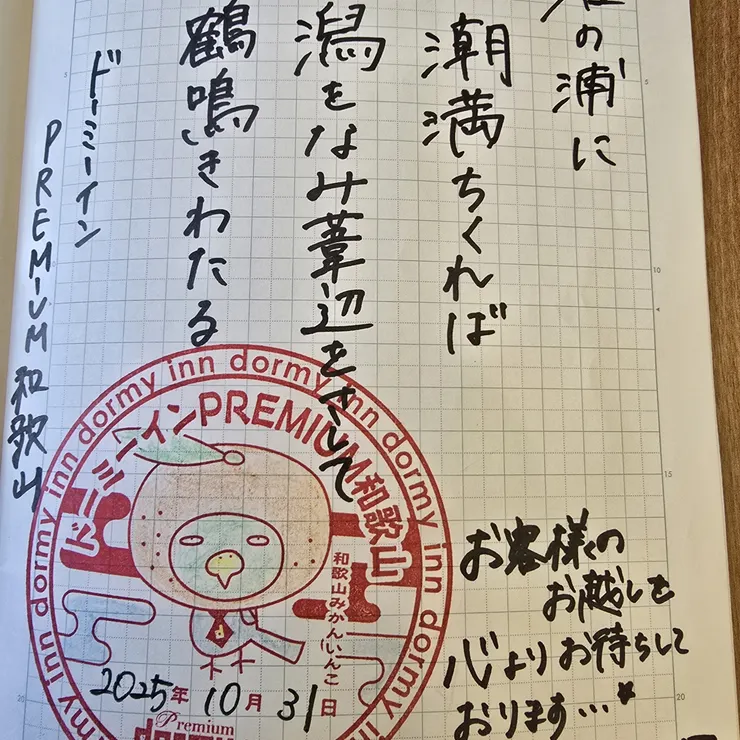 の浦に
潮満ちくれば
潟をなみ葦辺をさして
鶴鳴きわたる
ドーミーイン
PREMIUM和歌山
dormy inn dormy inn dormy inn dormy inn dormy inn
ドーミーインPREMIUM和歌山
和歌山みかんいんこ
2025年10月31日
Premium
dormy
お客様の
お越しを
心よりお待ちして
おります…
5
10
15
20
5
10
15
20